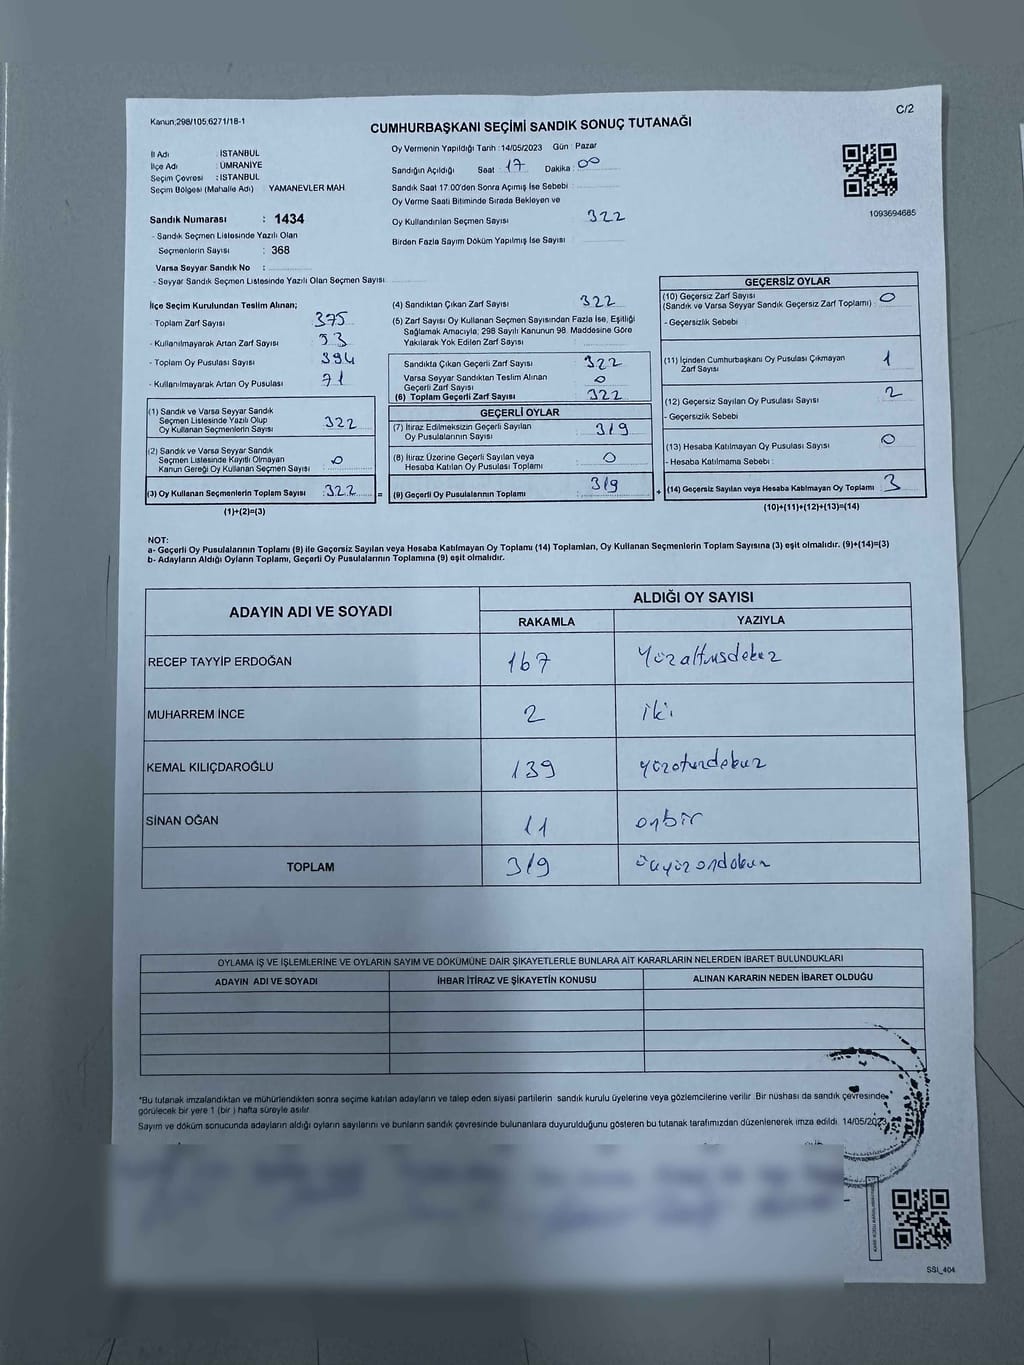 Kanun;298/105,6271/18-1
C/2
CUMHURBAŞKANI SEÇİMİ SANDIK SONUÇ TUTANAĞI
İl Adı : İSTANBUL
İlçe Adı : ÜMRANİYE
Seçim Çevresi : İSTANBUL
Seçim Bölgesi (Mahalle Adı) YAMANEVLER MAH.
Sandık Numarası : 1434
- Sandık Seçmen Listesinde Yazılı Olan
Seçmenlerin Sayısı : 368
Varsa Seyyar Sandık No :
- Seyyar Sandık Seçmen Listesinde Yazılı Olan Seçmen Sayısı
Oy Vermenin Yapıldığı Tarih :14/05/2023 Gün : Pazar
Sandığın Açıldığı Saat : 17 Dakika : 00
Sandık Saat 17.00'den Sonra Açımış İse Sebebi :
Oy Verme Saati Bitiminde Sırada Bekleyen ve
Oy Kullandırılan Seçmen Sayısı 322
Birden Fazla Sayım Döküm Yapılmış İse Sayısı
1093694685
İlçe Seçim Kurulundan Teslim Alınan;
- Toplam Zarf Sayısı 375
- Kullanılmayarak Artan Zarf Sayısı 53
- Toplam Oy Pusulası Sayısı 394
- Kullanılmayarak Artan Oy Pusulası 71
(1) Sandık ve Varsa Seyyar Sandık
Seçmen Listesinde Yazılı Olup
Oy Kullanan Seçmenlerin Sayısı 322
(2) Sandık ve Varsa Seyyar Sandık
Seçmen Listesinde Kayıtlı Olmayan
Kanun Gereği Oy Kullanan Seçmen Sayısı 0
(3) Oy Kullanan Seçmenlerin Toplam Sayısı : 322 =
(1)+(2)=(3)
(4) Sandıktan Çıkan Zarf Sayısı 322
(5) Zarf Sayısı Oy Kullanan Seçmen Sayısından Fazla İse, Eşitliği
Sağlamak Amacıyla; 298 Sayılı Kanunun 98. Maddesine Göre
Yakılarak Yok Edilen Zarf Sayısı
Sandıkta Çıkan Geçerli Zarf Sayısı 322
Varsa Seyyar Sandıktan Teslim Alınan
Geçerli Zarf Sayısı 0
(6) Toplam Geçerli Zarf Sayısı 322
GEÇERLİ OYLAR
(7) İtiraz Edilmeksizin Geçerli Sayılan
Oy Pusulalarının Sayısı 319
(8) İtiraz Üzerine Geçerli Sayılan veya
Hesaba Katılan Oy Pusulası Toplamı 0
(9) Geçerli Oy Pusulalarının Toplamı 319 +
GEÇERSİZ OYLAR
(10) Geçersiz Zarf Sayısı
(Sandık ve Varsa Seyyar Sandık Geçersiz Zarf Toplamı) 0
- Geçersizlik Sebebi :
(11) İçinden Cumhurbaşkanı Oy Pusulası Çıkmayan
Zarf Sayısı 1
(12) Geçersiz Sayılan Oy Pusulası Sayısı 2
- Geçersizlik Sebebi
(13) Hesaba Katılmayan Oy Pusulası Sayısı 0
- Hesaba Katılmama Sebebi :
(14) Geçersiz Sayılan veya Hesaba Katılmayan Oy Toplamı 3
(10)+(11)+(12)+(13)=(14)
NOT:
a- Geçerli Oy Pusulalarının Toplamı (9) ile Geçersiz Sayılan veya Hesaba Katılmayan Oy Toplamı (14) Toplamları, Oy Kullanan Seçmenlerin Toplam Sayısına (3) eşit olmalıdır. (9)+(14)=(3)
b- Adayların Aldığı Oyların Toplamı, Geçerli Oy Pusulalarının Toplamına (9) eşit olmalıdır.
ADAYIN ADI VE SOYADI
ALDIĞI OY SAYISI
RAKAMLA YAZIYLA
RECEP TAYYİP ERDOĞAN 167
MUHARREM İNCE 2 iki
KEMAL KILIÇDAROĞLU 139
SİNAN OĞAN 11 onbir
TOPLAM 319
OYLAMA İŞ VE İŞLEMLERİNE VE OYLARIN SAYIM VE DÖKÜMÜNE DAİR ŞİKAYETLERLE BUNLARA AİT KARARLARIN NELERDEN İBARET BULUNDUKLARI
ADAYIN ADI VE SOYADI İHBAR İTİRAZ VE ŞİKAYETİN KONUSU ALINAN KARARIN NEDEN İBARET OLDUĞU
*Bu tutanak imzalandıktan ve mühürlendikten sonra seçime katılan adayların ve talep eden siyasi partilerin sandık kurulu üyelerine veya gözlemcilerine verilir. Bir nüshası da sandık çevresinde
görülecek bir yere 1 (bir) hafta süreyle asılır.
Sayım ve döküm sonucunda adayların aldığı oyların sayılarını ve bunların sandık çevresinde bulunanlara duyurulduğunu gösteren bu tutanak tarafımızdan düzenlenerek imza edildi. 14/05/2023
SSI_404